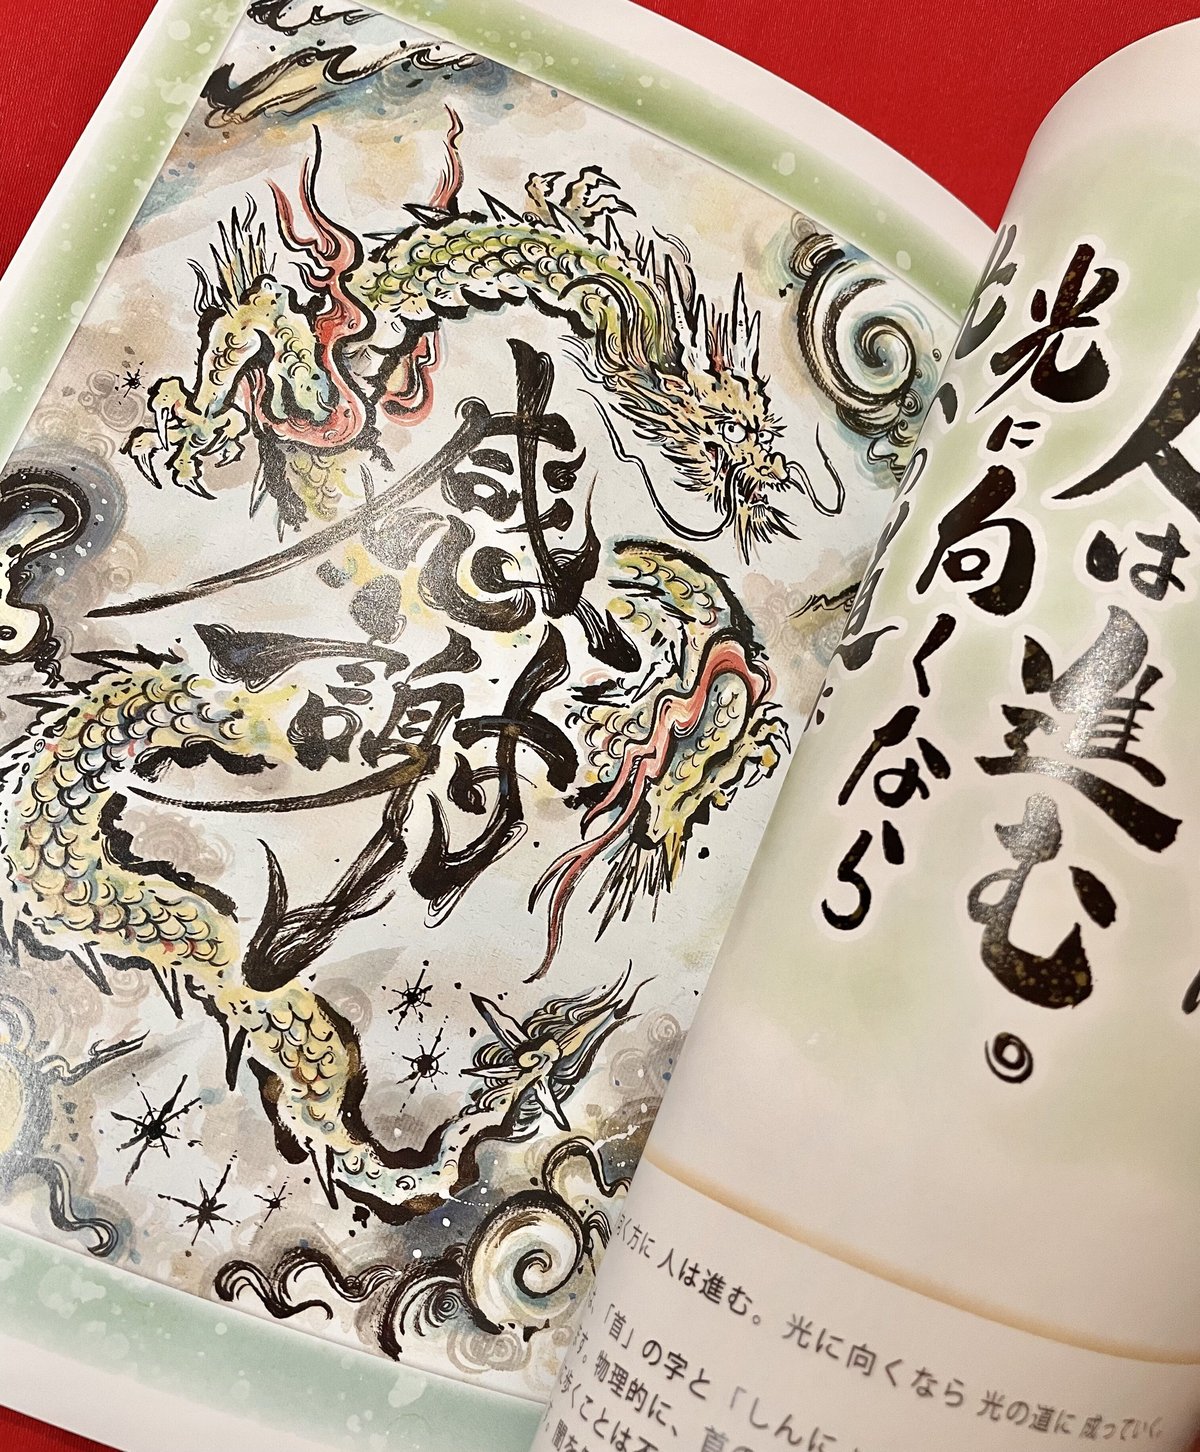 感謝
人は進む。
光に向くなら
く方に 人は進む。 光に向くなら 光の道に 成っていく
「首」の字と「しんに
す。物理的に、首の
歩くことは不
闇を